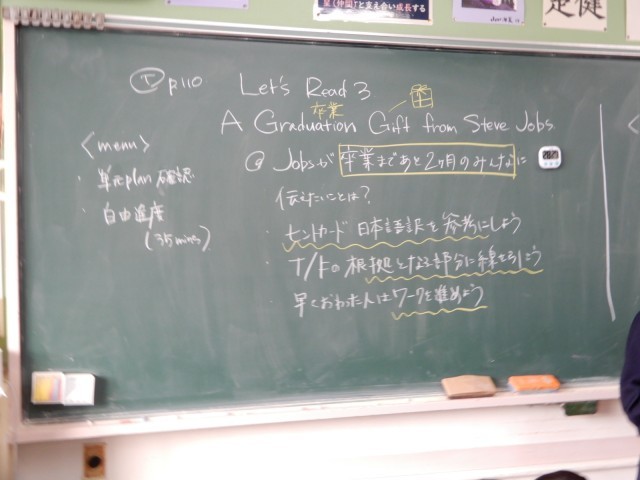 星(仲間)と支え合い成長する
健
Ⓣ p110 Let's Read 3
卒業
A Graduation Gift from Steve Jobs.
<menu>
・単元plan 確認
・自由進度
(35mins)
@ Jobsが卒業まであと2ヶ月のみんなに
伝えたいことは?
・ヒントカード 日本語訳を参考にしよう
・T/Fの根拠となる部分に線を引こう
早くおわった人はワークを進めよう